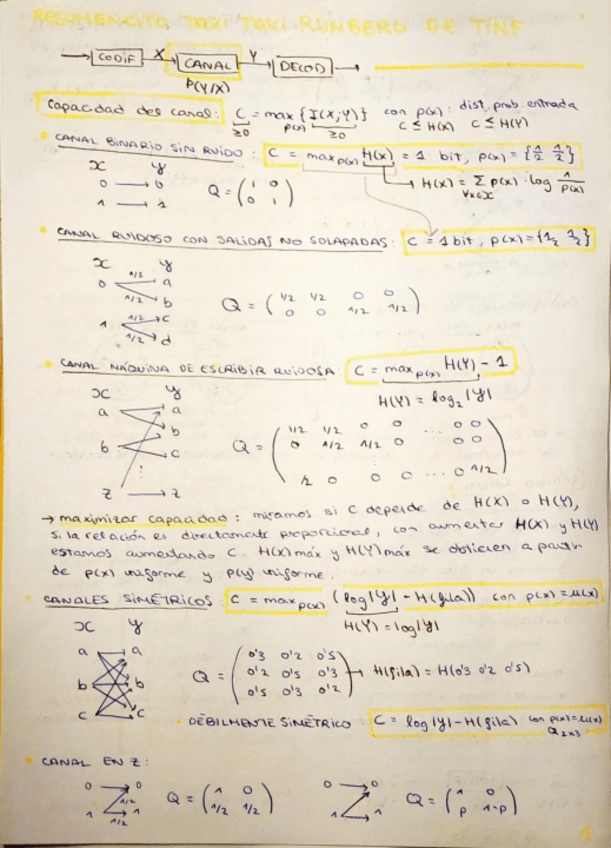 RESUMENCITO TAKI TAKI RUMBERO DE TINF
CODIF X CANAL Y DECOD
P(Y/X)
Capacidad del canal: C = max {I(X;Y)} con p(x): dist. prob. entrada
≥0 p(x) ≥0 C ≤ H(X) C ≤ H(Y)
CANAL BINARIO SIN RUIDO: C = max p(x) H(x) = 1 bit, p(x) = {1/2 1/2}
X Y
0 0
1 1
Q = (1 0
0 1)
H(x) = Σ p(x) · log 1/p(x)
∀x∈X
CANAL RUIDOSO CON SALIDAS NO SOLAPADAS: C = 1 bit, p(x) = {1/2 1/2}
X Y
0 1/2 a
1/2 b
1 1/2 c
1/2 d
Q = (1/2 1/2 0 0
0 0 1/2 1/2)
CANAL MÁQUINA DE ESCRIBIR RUIDOSA: C = max p(x) H(Y) - 1
H(Y) = log₂|Y|
X Y
a a
b b
c
⋮
z z
Q = (1/2 1/2 0 0 ... 0 0
0 1/2 1/2 0 0 0
⋮
1/2 0 0 0 ... 0 1/2)
→ maximizar capacidad: miramos si C depende de H(X) o H(Y),
si la relación es directamente proporcional, con aumentar H(X) y H(Y)
estamos aumentando C. H(X) máx y H(Y) máx se obtienen a partir
de p(x) uniforme y p(y) uniforme.
CANALES SIMÉTRICOS: C = max p(x) (log|Y| - H(fila)) con p(x) = u(x)
H(Y) = log|Y|
X Y
a a
b b
c c
Q = (0'3 0'2 0'5
0'2 0'5 0'3
0'5 0'3 0'2) → H(fila) = H(0'3 0'2 0'5)
· DÉBILMENTE SIMÉTRICO C = log|Y| - H(fila) con p(x) = u(x)
Q 2x3
CANAL EN Z:
0 0
1/2
1 1/2 1
Q = (1 0
1/2 1/2)
0 0
1 1
Q = (1 0
p 1-p)